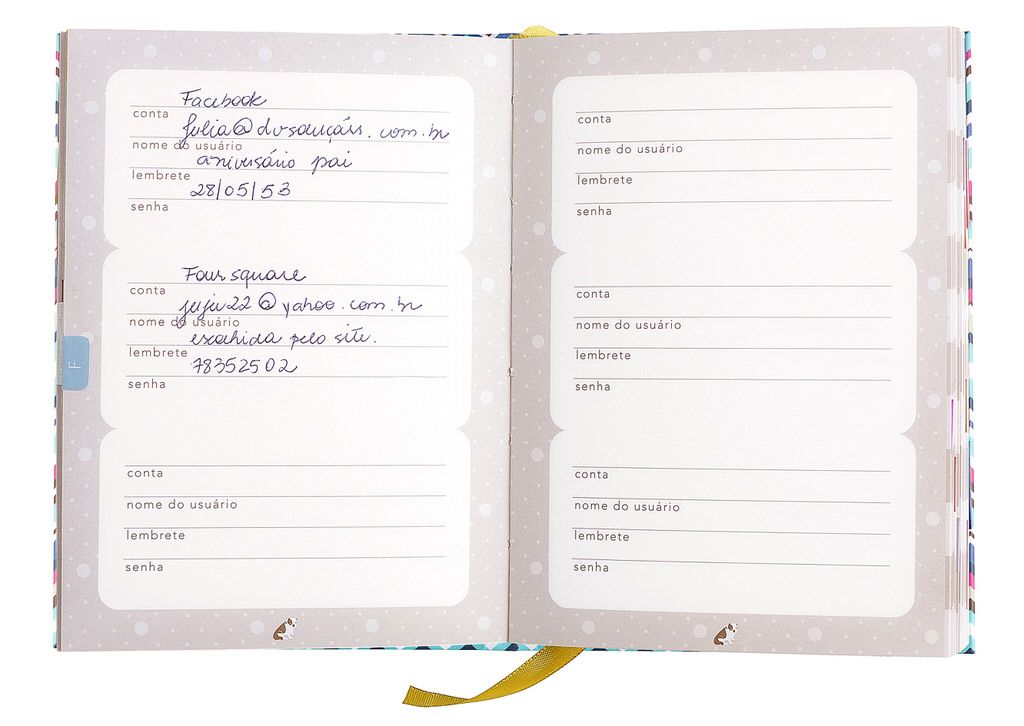 Facebook
conta
julia@dvsoluções.com.br
nome do usuário
aniversário pai
lembrete
28/05/53
senha
Foursquare
conta
juju22@yahoo.com.br
nome do usuário
escolhida pelo site.
lembrete
78352502
senha
conta
nome do usuário
lembrete
senha
F
conta
nome do usuário
lembrete
senha
conta
nome do usuário
lembrete
senha
conta
nome do usuário
lembrete
senha